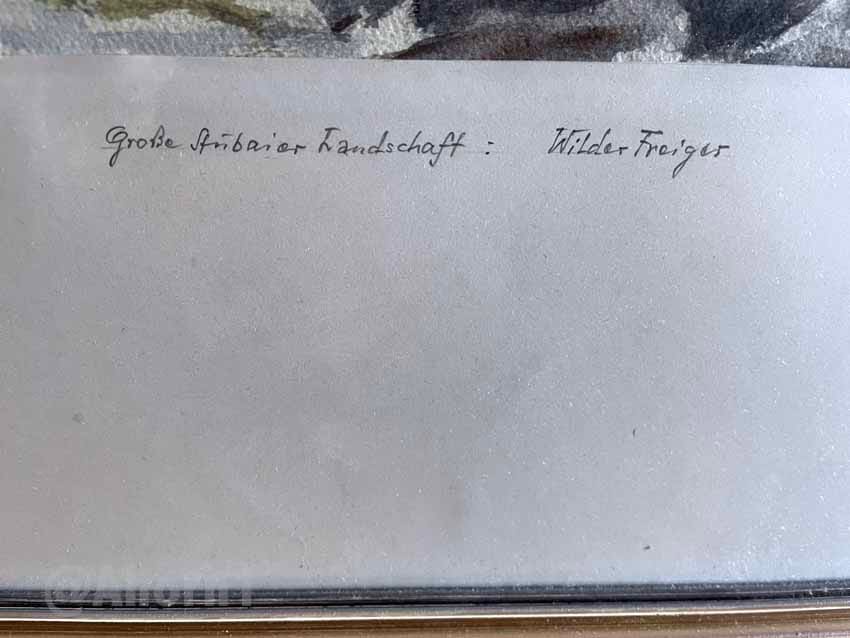 Große Stubaier Landschaft : Wilder Freiger